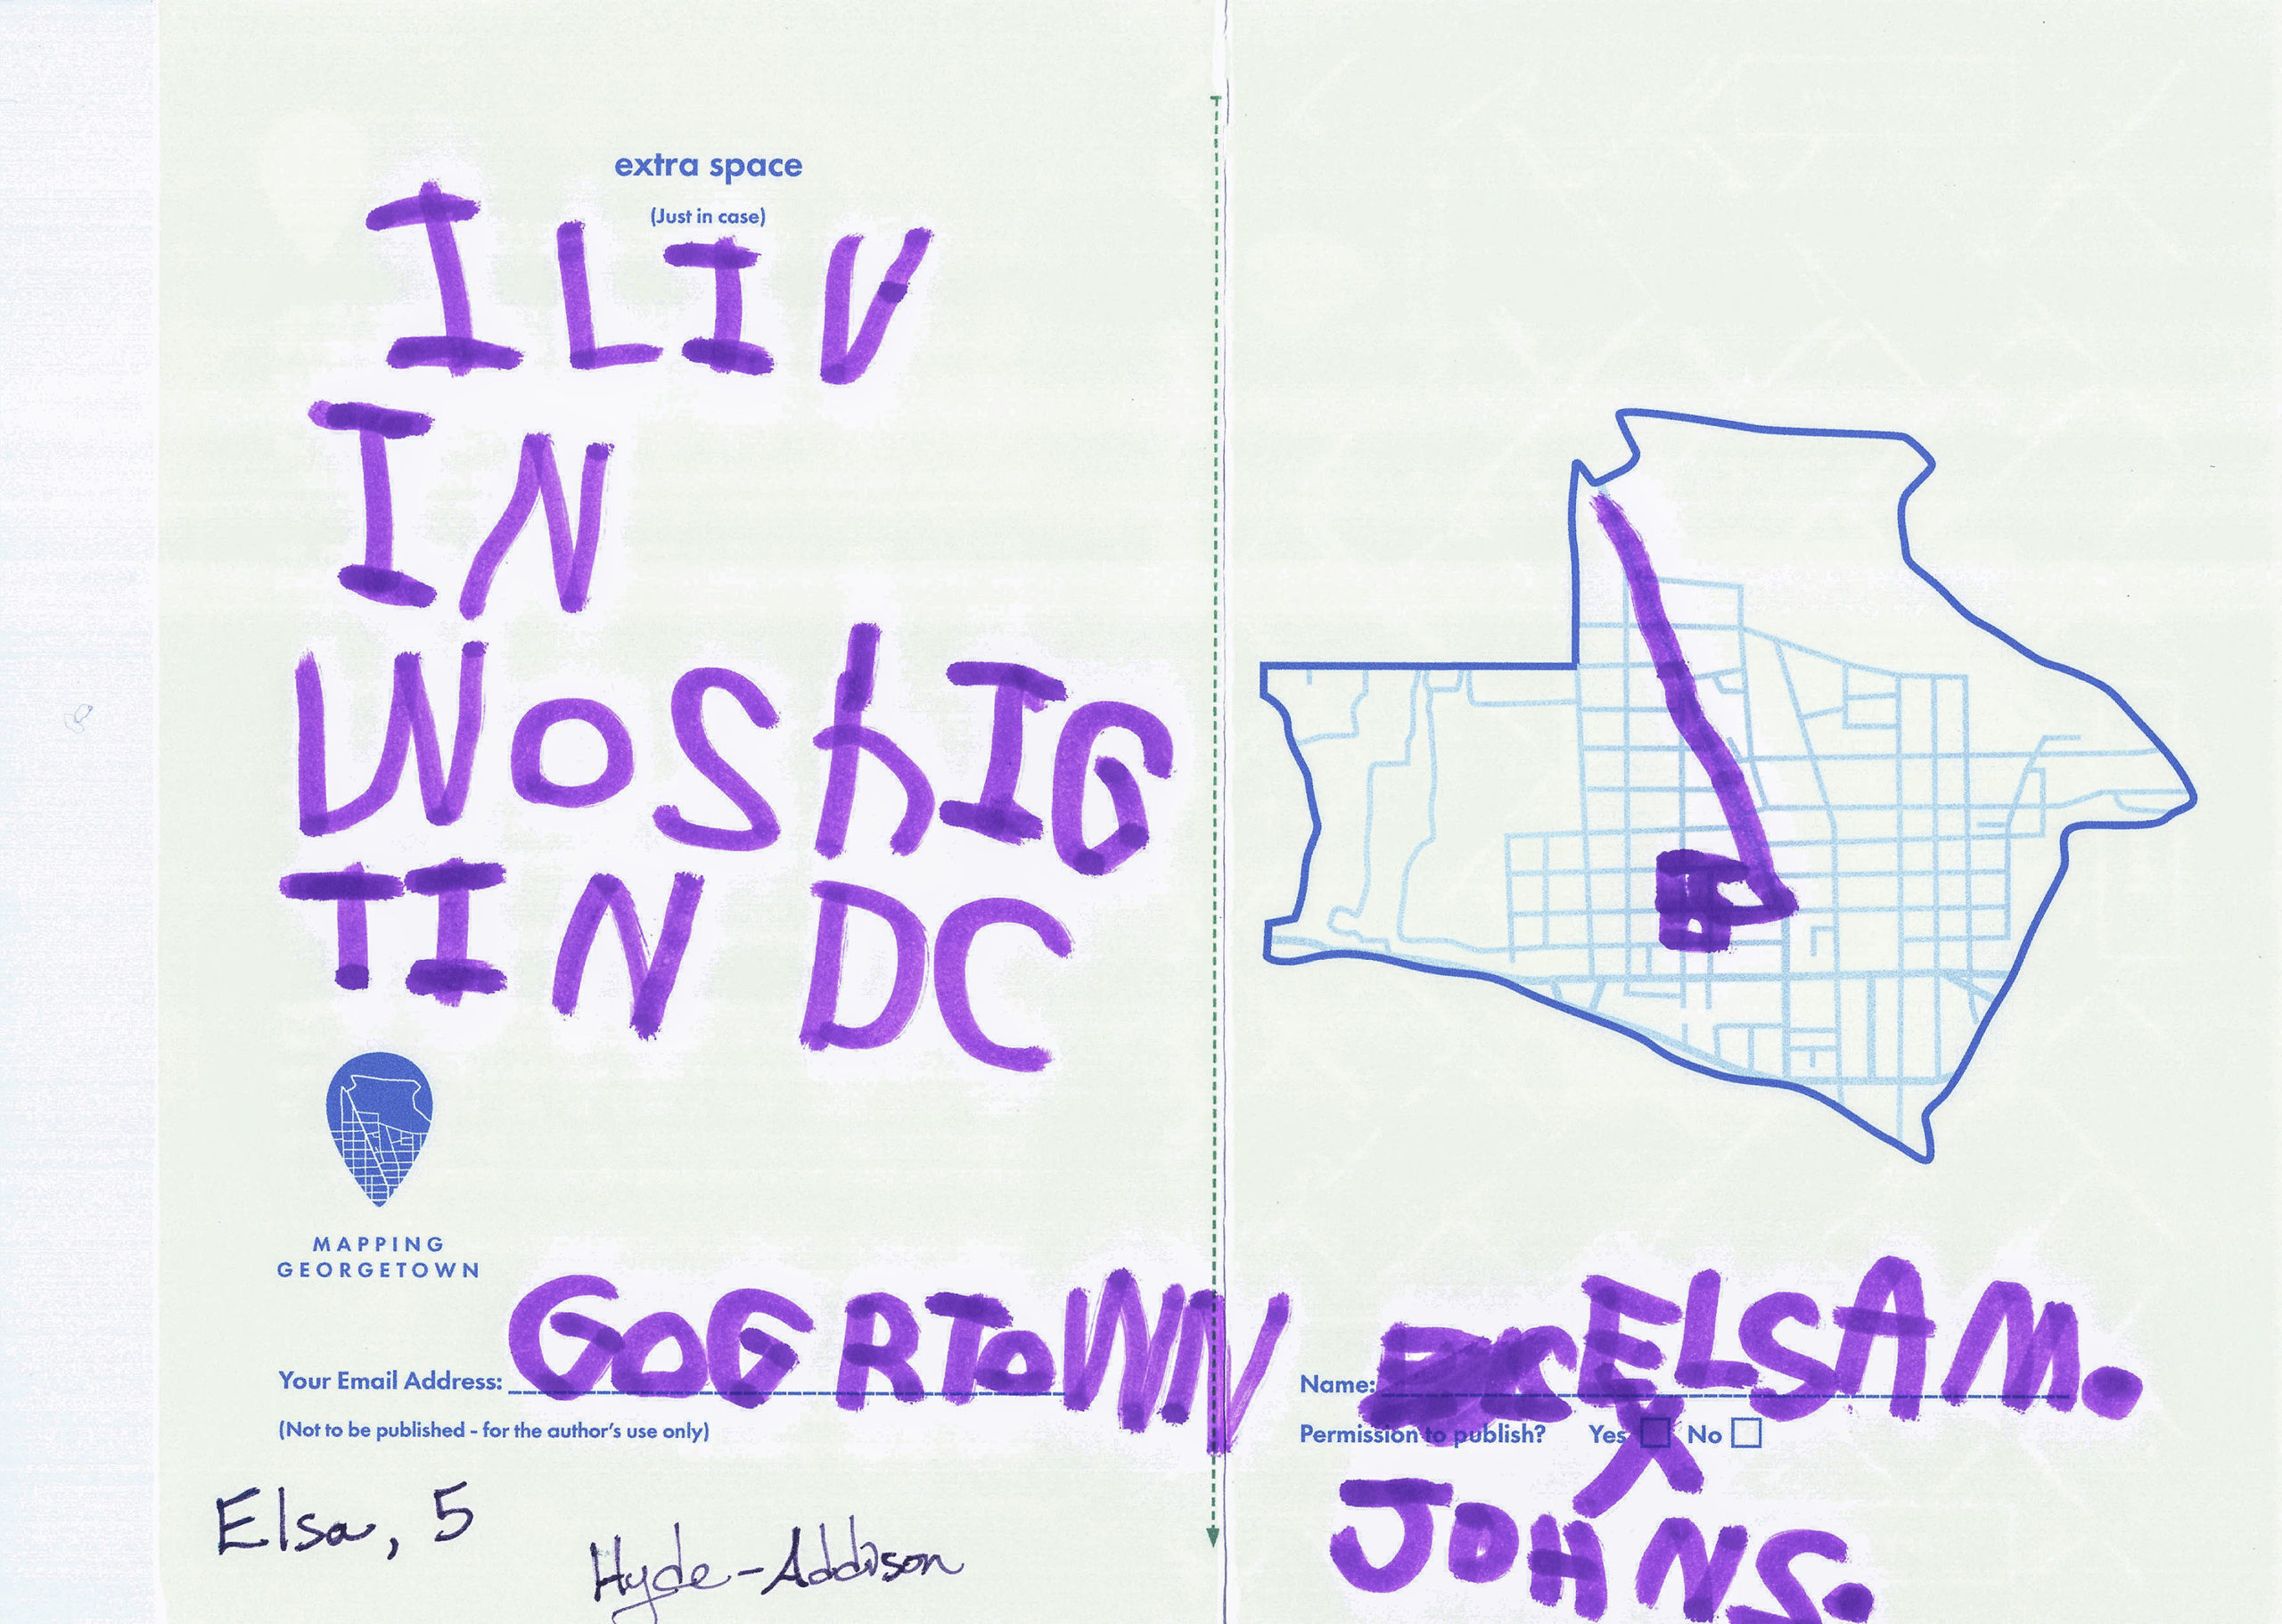 extra space
(Just in case)
I LIV
IN
WOShIG
TIN DC
MAPPING
GEORGETOWN
Your Email Address: GOGRTOWN
(Not to be published - for the author's use only)
Elsa, 5
Hyde-Addison
Name: ELSA M.
Permission to publish? Yes No
JOHNS.